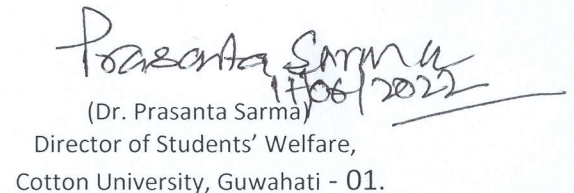 Prasanta Sarma
17/06/2022
(Dr. Prasanta Sarma)
Director of Students’ Welfare,
Cotton University, Guwahati - 01.